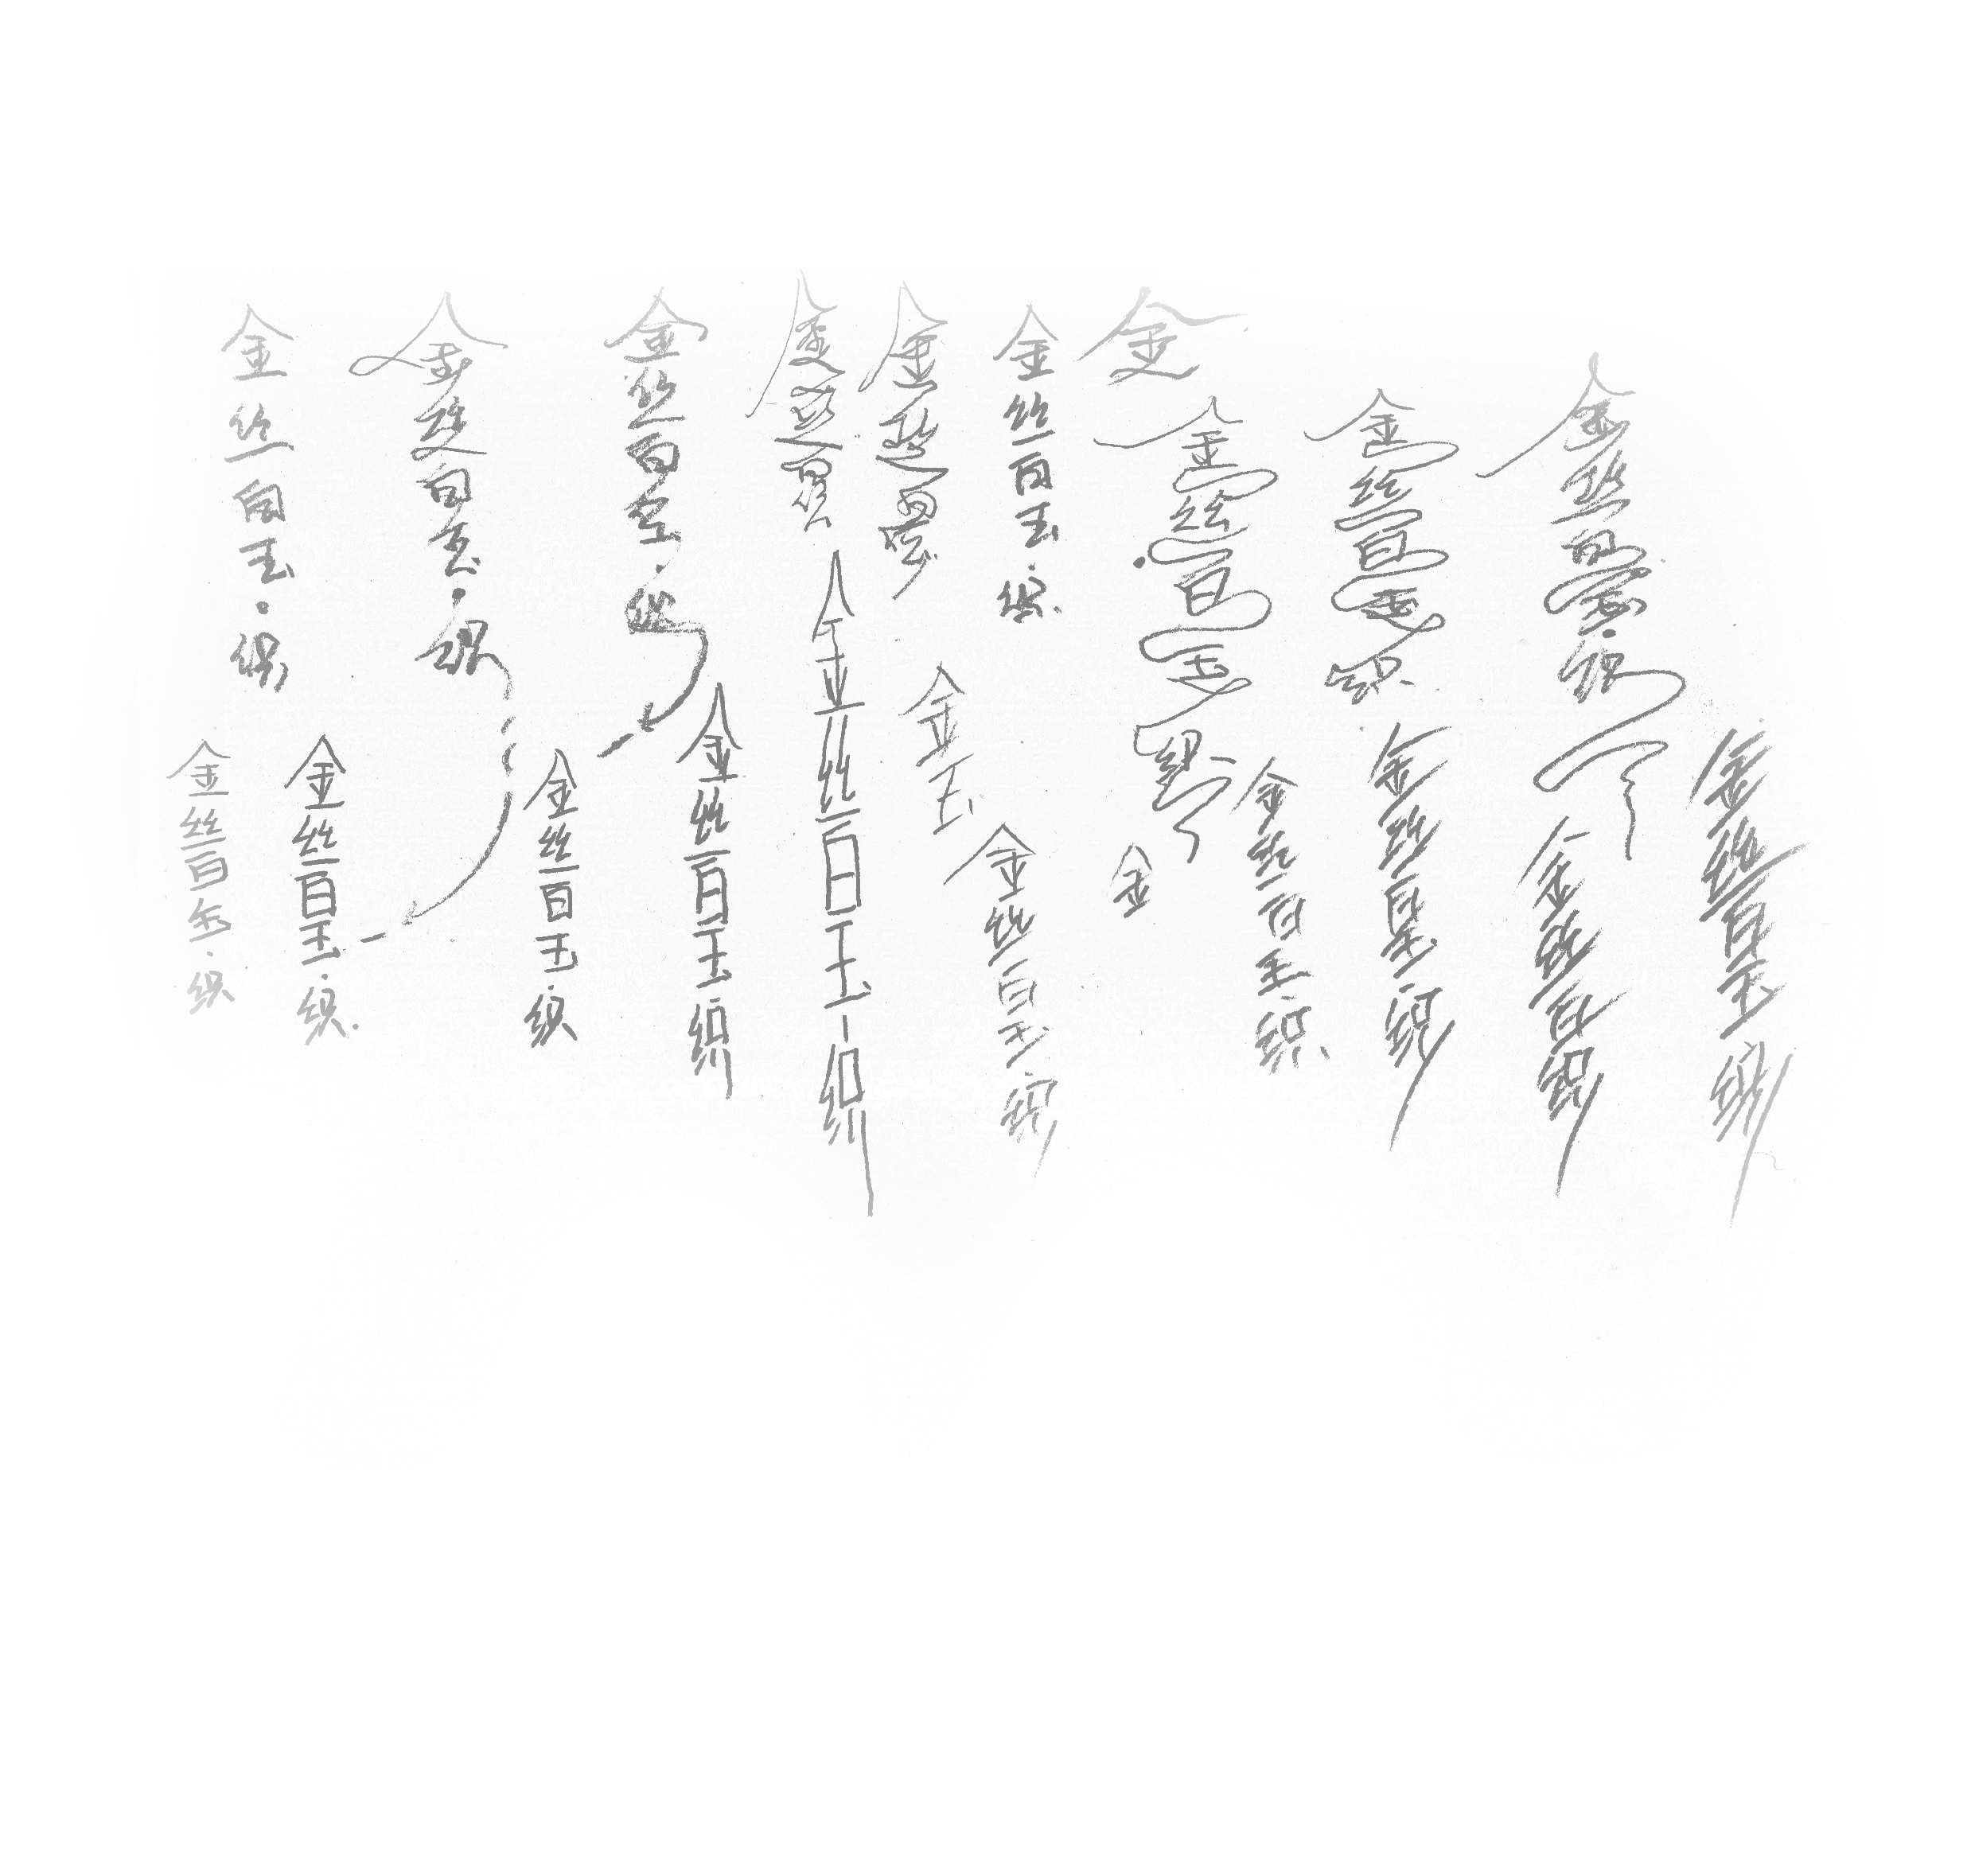 金丝白玉·织
金丝白玉织
金丝白玉织
金
金丝白玉·织
金丝白玉
金丝白玉
金丝白玉·织
金丝白玉·织
金丝白玉·织
金丝白玉·织
金丝白织
金丝白玉·织
金丝白玉·织
金
金丝白玉·织
金玉
金丝白玉-织
金丝白玉·织
金丝白玉·织
金丝白玉·织
金丝白玉·织